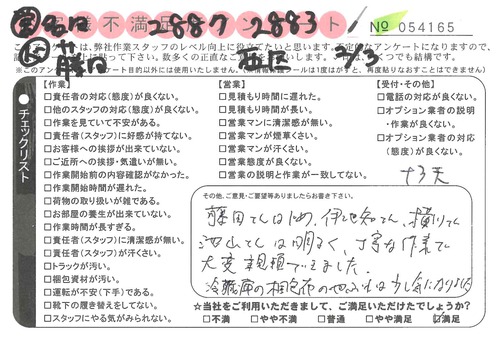 お客様不満足アンケート 2887 2883 № 054165
このアンケートは、弊社作業スタッフのレベル向上に役立てたいと思います。否定的なアンケートになりますので、
西区 3/3
※このアンケート目的以外には使用いたしません。
チェックリスト
【作業】
□責任者の対応(態度)が良くない。
□他のスタッフの対応(態度)が良くない。
□作業を見ていて不安がある。
□責任者(スタッフ)に好感が持てない。
□お客様への挨拶が出来ていない。
□ご近所への挨拶・気遣いが無い。
□作業開始前の内容確認がなかった。
□作業開始時間が遅れた。
□荷物の取り扱いが雑である。
□お部屋の養生が出来ていない。
□作業時間が長すぎる。
□責任者(スタッフ)に清潔感が無い。
□責任者(スタッフ)が汗くさい。
□トラックが汚い。
□梱包資材が汚い。
□運転が不安(下手)である。
□靴下の履き替えをしてない。
□スタッフにやる気がみられない。
【営業】
□見積もり時間に遅れた。
□見積もり時間が長い。
□営業マンに清潔感が無い。
□営業マンが煙草くさい。
□営業マンが汗くさい。
□営業態度が良くない。
□営業の説明と作業が一致してない。
【受付・その他】
□電話の対応が良くない。
□オプション業者の説明
・作業が良くない。
□オプション業者の対応
(態度)が良くない。
その他、ご意見・ご要望等ありましたらお書き下さい。
藤田さんはじめ、伊地知さん、横川さん
池山さんは明るく、丁寧な作業で
大変親切でした。
冷蔵庫の梱包
★当社をご利用いただきまして、ご満足いただけたでしょうか?
□不満 □やや不満 □普通 □やや満足 ☑満足